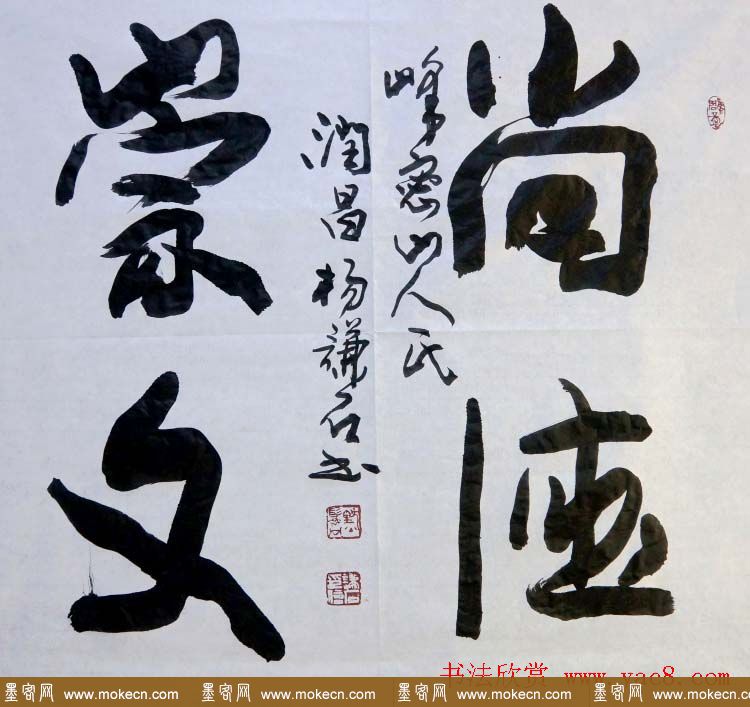 尚德
密山人氏
潤昌杨謙石书
崇文
书法欣赏 www.yac8.com
墨客网 www.mokecn.com 墨客网 www.mokecn.com 墨客网 www.mokecn.com 墨客网 www.mokecn.com